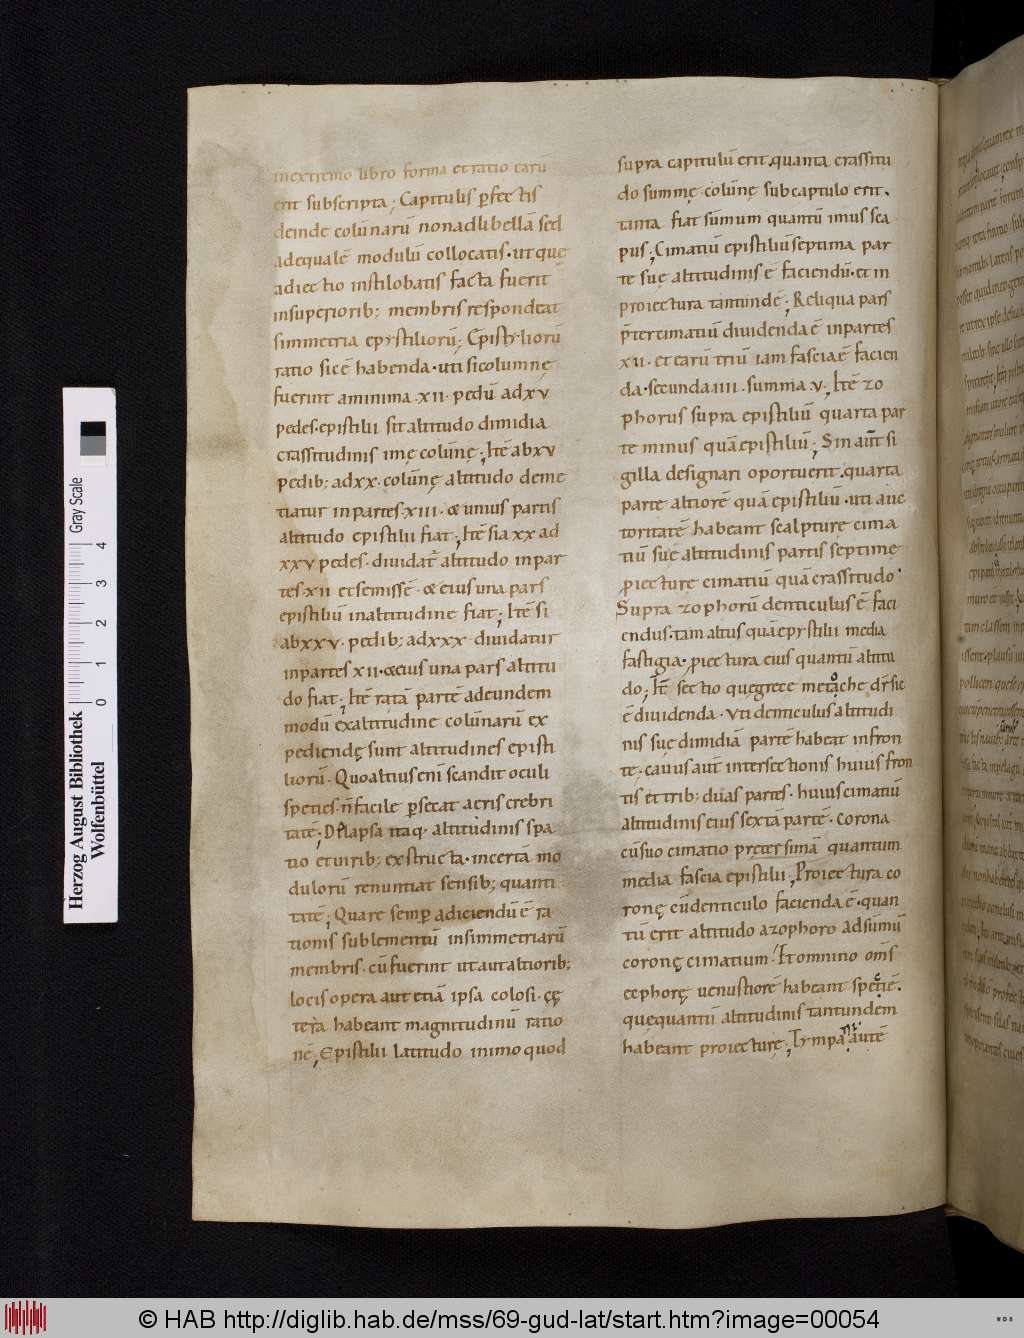 in extremo libro forma et ratio earū
erit subscripta; Capitulis ꝑfectis
deinde colūnarū non ad libellā sed
ad equalē modulū collocatis· ut que
adiectio in stilobatis facta fuerit
in superiorib; membris respondeat
simmetria epystiliorū; Epistyliorū
ratio sic ē habenda· uti si columnę
fuerint a minima ·xii· pedū ad xv
pedes· epistilii sit altitudo dimidia
crassitudinis imę colūnę; Itē ab xv
pedib; ad xx· colūnę altitudo deme
tiatur in partes ·xiii· & unius partis
altitudo epistilii fiat; Itē si a xx ad
xxv pedes· dividat altitudo in par
tes ·xii et semissē· & eius una pars
epistiliū in altitudine fiat; Itē si
ab xxv· pedib; ad xxx dividatur
in partes xii· & eius una pars altitu
do fiat; Itē ratā partē ad eundem
modū ex altitudine colūnarū ex
pediendę sunt altitudines episti
liorū· Quo altius enī scandit oculi
species· n̄ facile ꝑsecat aeris crebri
tatē· Dilapsa itaq· altitudinis spa
tio et virib; exstructa· incertā mo
dulorū renuntiat sensib; quanti
tatē; Quare semꝑ adiciendū ē ra
tionis sublementū in simmetriarū
membris· cū fuerint ut aut altiorib;
locis opera aut etiā ipsa colosi· cę
tera habeant magnitudinū ratio
nē; Epistilii latitudo in imo quod
supra capitulū erit· quanta crassitu
do summę colūnę sub capitulo erit·
tanta fiat sūmum quantū imus sca
pus; Cimatiū epistilii septima par
te suę altitudinis ē faciendū· et in
proiectura tantundē; Reliqua pars
p̄ter cimatiū dividenda ē in partes
xii· et earū triū iam fascia ē facien
da· secunda iiii· summa v; Itē zo
phorus supra epistiliū quarta par
te minus quā epistiliū; Sin aut̄ si
gilla designari oportuerit· quarta
parte altiorē quā epistiliū· uti auc
toritatē habeant scalpturę cima
tiū suę altitudinis partis septimę
piecturę cimatiū quā crassitudo·
Supra zophorū denticulus ē faci
endus· tam altus quā epystilii media
fastigia· piectura eius quantū altitu
do; Itē sectio que grece metache dr̄ sic
ē dividenda· Uti denticulus altitudi
nis suę dimidiā partē habeat in fron
te· cavus aut̄ intersectionis huius fron
tis et trib; duas partes· huius cimatiū
altitudinis eius sextā partē· corona
cū suo cimatio pręter simā quantum
media fascia epistilii; Proiectura co
ronę cū denticulo facienda ē· quan
tū erit altitudo a zophoro ad sūmū
coronę cimatium· Et omnino om̄s
ecphorę venustiorē habeant speciē·
que quantū altitudinis tantundem
habeant proiecturę; Tympani autē
Herzog August Bibliothek
Wolfenbüttel
0 1 2 3 4 Gray Scale
© HAB http://diglib.hab.de/mss/69-gud-lat/start.htm?image=00054